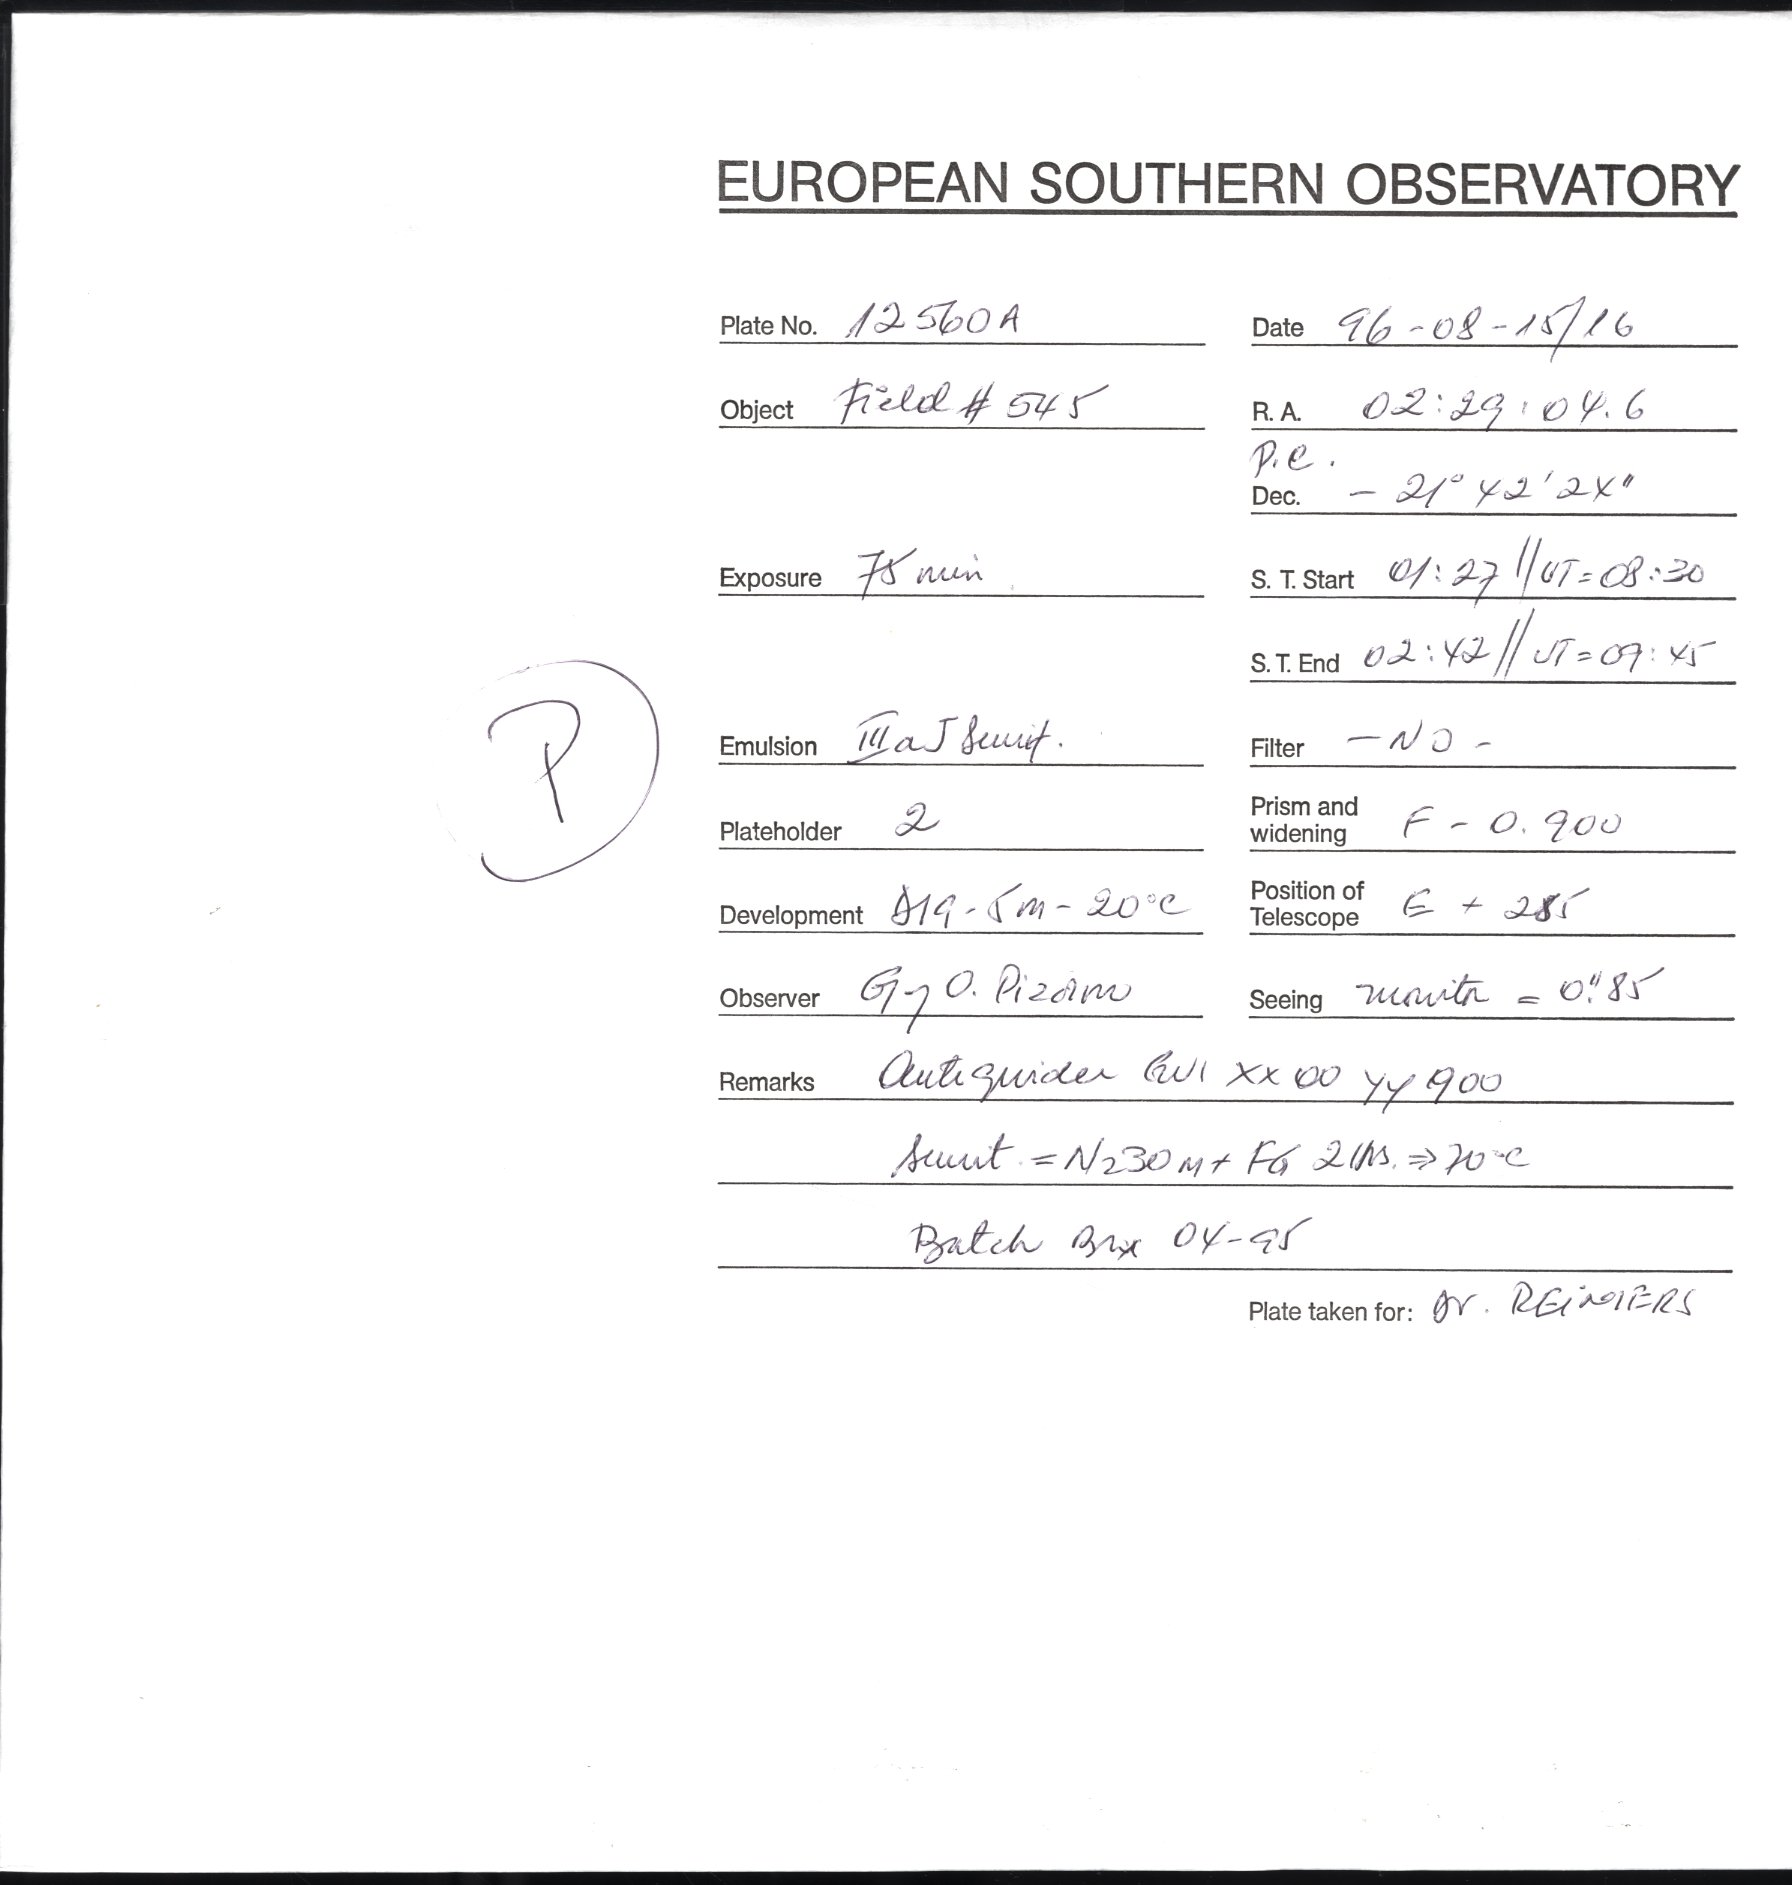 EUROPEAN SOUTHERN OBSERVATORY
Plate No. 12560A
Date 96-08-15/16
Object Field # 545
R. A. 02:29:04.6
P.C.
Dec. - 21° 42' 24"
Exposure 75 min
S. T. Start 01:27 // UT=08:30
S. T. End 02:42 // UT=09:45
P
Emulsion IIIaJ
Filter - NO -
Plateholder 2
Prism and widening F - 0.900
Development D19 - 5m - 20°C
Position of Telescope E + 285
Observer G y O. Pizarro
Seeing monitor = 0."85
Remarks XX 00 YY 900
= N2 30m + FG 2 hrs. ⇒ 70°C
Batch Box 04-95
Plate taken for: Dr. REIMERS